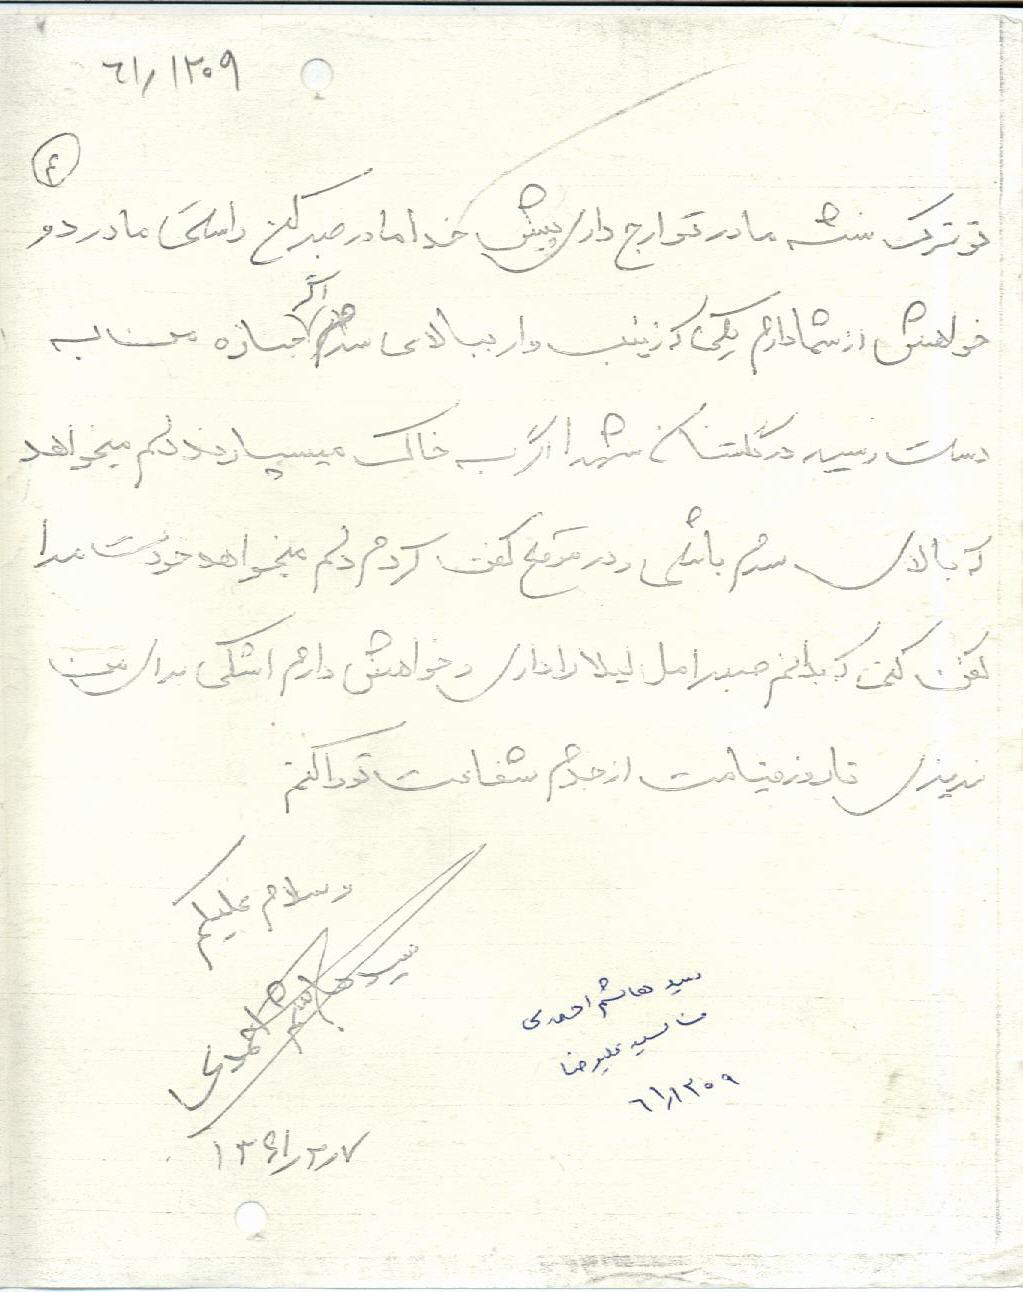 ۶۱/۱۳۰۹
۴
تو ترک نشه مادر تو ارج داری پیش خدا مادر صبر کن راستی مادر دو
خواهش از شما دارم یکی که زینب وار ببالای سرم اگر جنازه من به
دست رسید در گلستان شهدا اگر به خاک میسپارند دلم میخواهد
که بالای سرم باشی و در موقع کفن کردم دلم میخواهد خودت مرا
کفن کنی که بدانم صبر امل لیلا را داری و خواهش دارم اشکی برای من
نریزی تا روز قیامت از جدم شفاعت تو را کنم
وسلام علیکم
سید هاشم احمدی
۱۳۶۱/۲/۷
سید هاشم احمدی
سید علیرضا
۶۱/۱۳۰۹